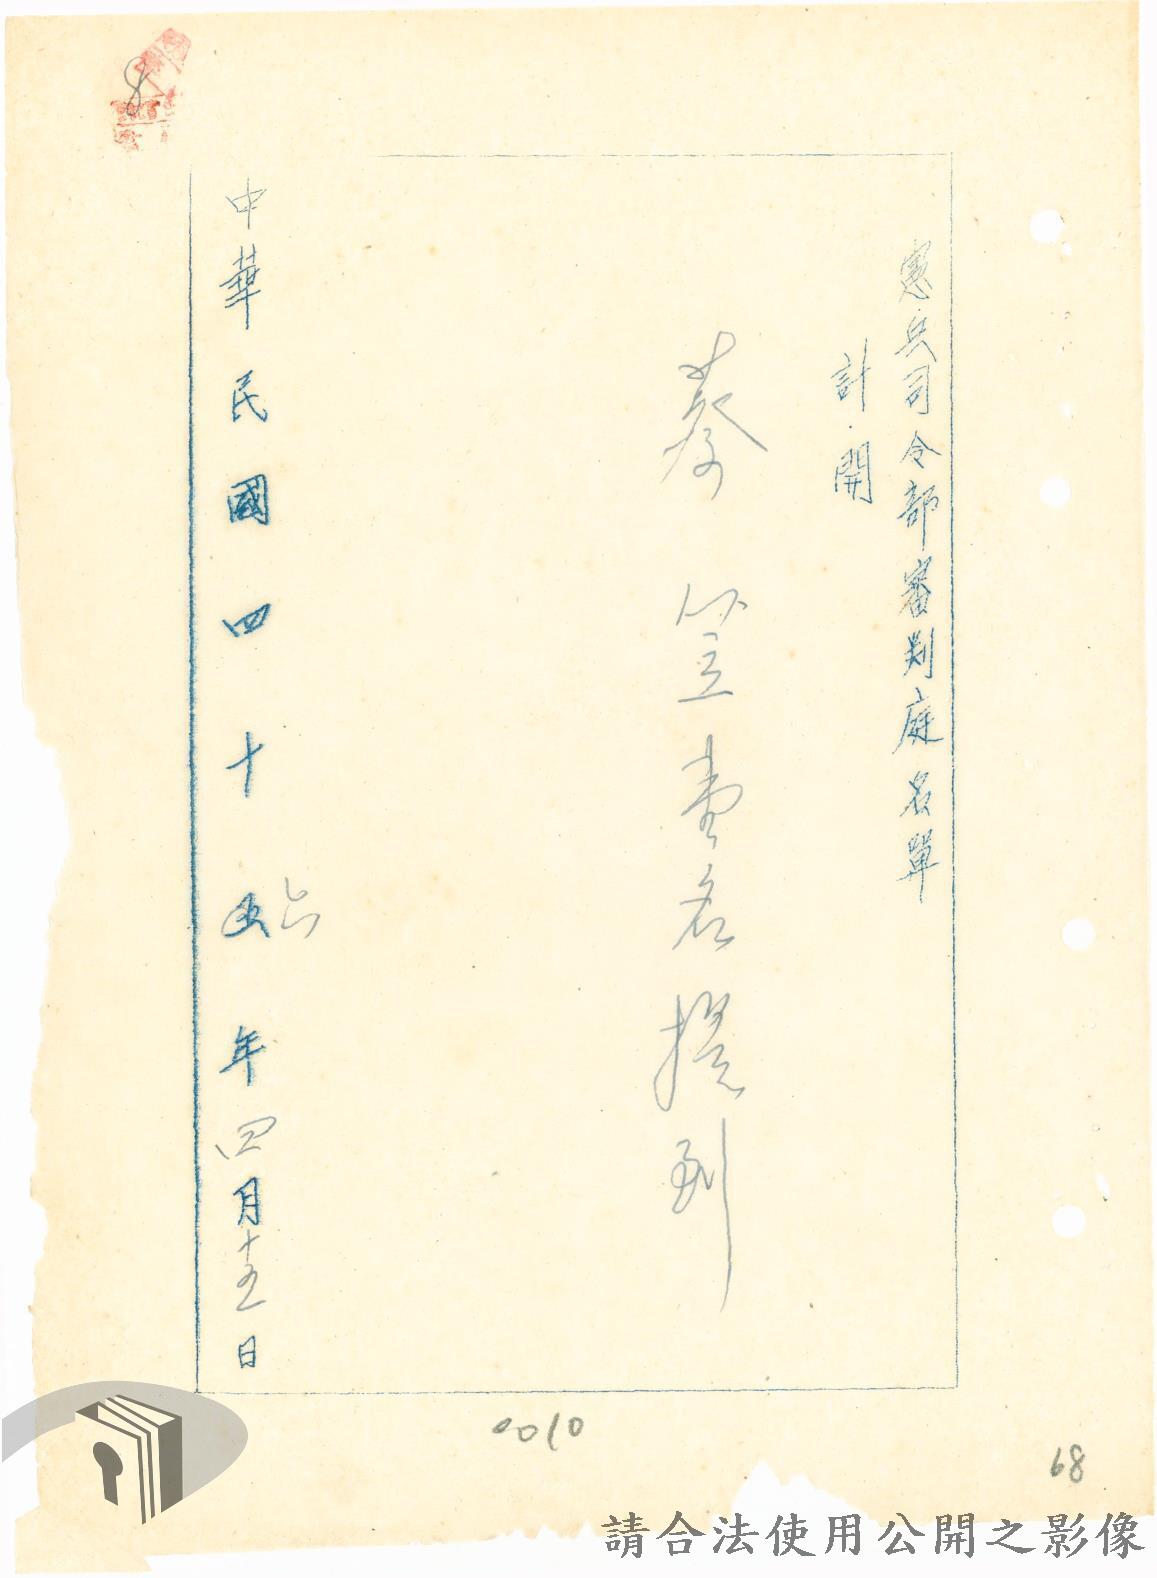 憲兵司令部審判庭名單
計開
蔡笠壹名提到
中華民國四十五六年四月十五日
0010
68
請合法使用公開之影像